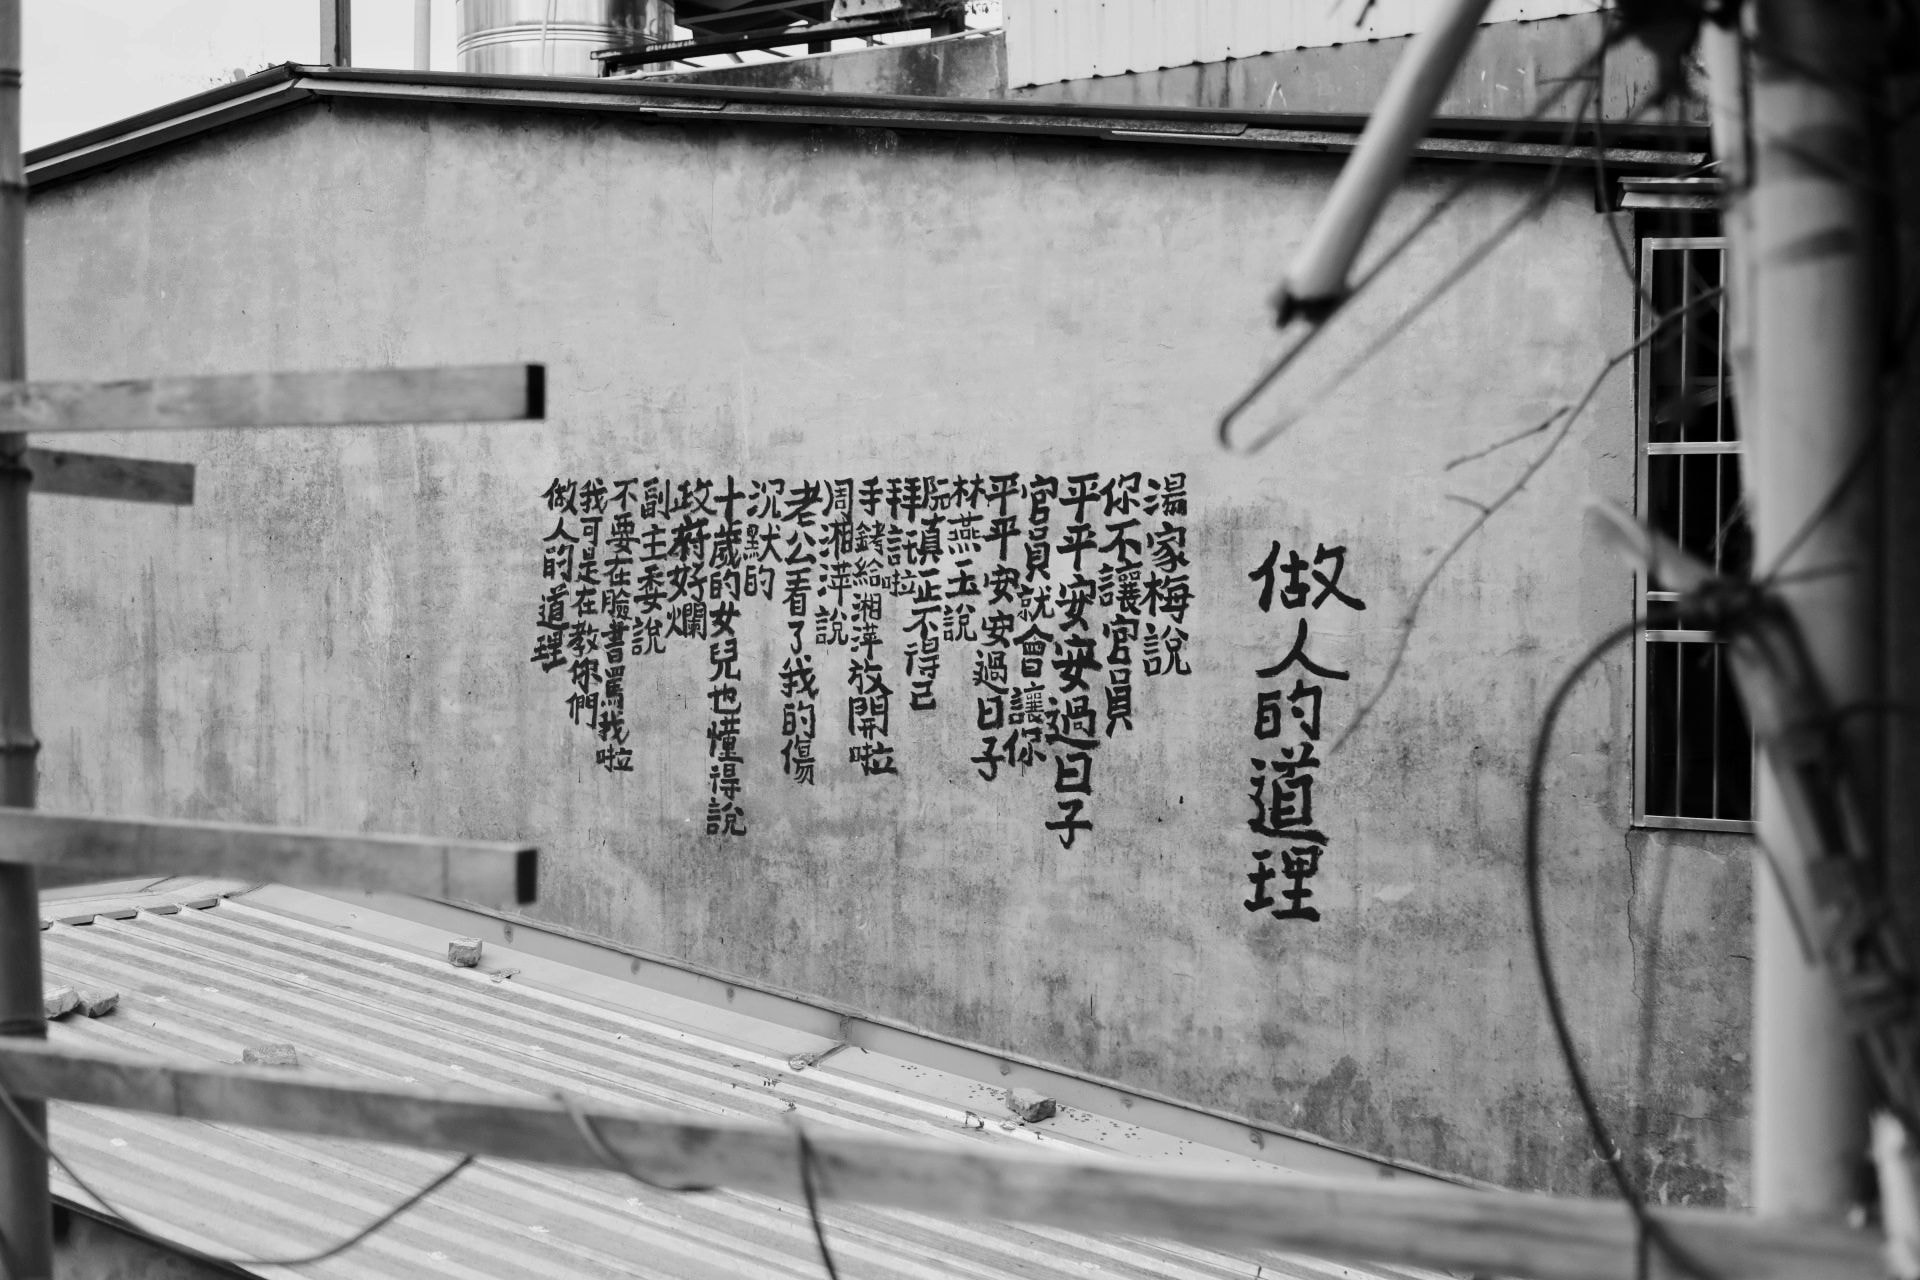 做人的道理
湯家梅說
你不讓官員
平平安安過日子
官員就會讓你
平平安安過日子
林燕玉說
阮真正不得已
拜託啦
手銬給湘萍放開啦
周湘萍說
老公看了我的傷
沉默的
十歲的女兒也懂得說
政府好爛
副主委說
不要在臉書罵我啦
我可是在教你們
做人的道理